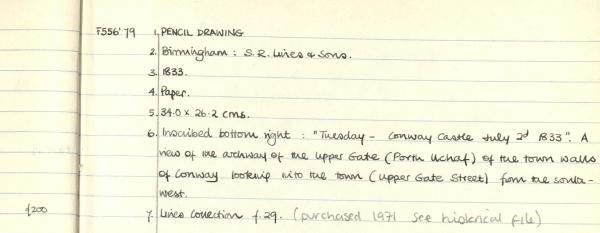 F556'79 1. PENCIL DRAWING
2. Birmingham : S.R. Lines & Sons.
3. 1833.
4. Paper.
5. 34.0 x 26.2 cms.
6. Inscribed bottom right : "Tuesday - Conway Castle July 2d 1833". A
view of the archway of the Upper Gate (Porth Uchaf) of the town walls
of Conway looking into the town (Upper Gate Street) from the south-
west.
£200 7. Lines Collection f.29. (purchased 1971 see historical file)